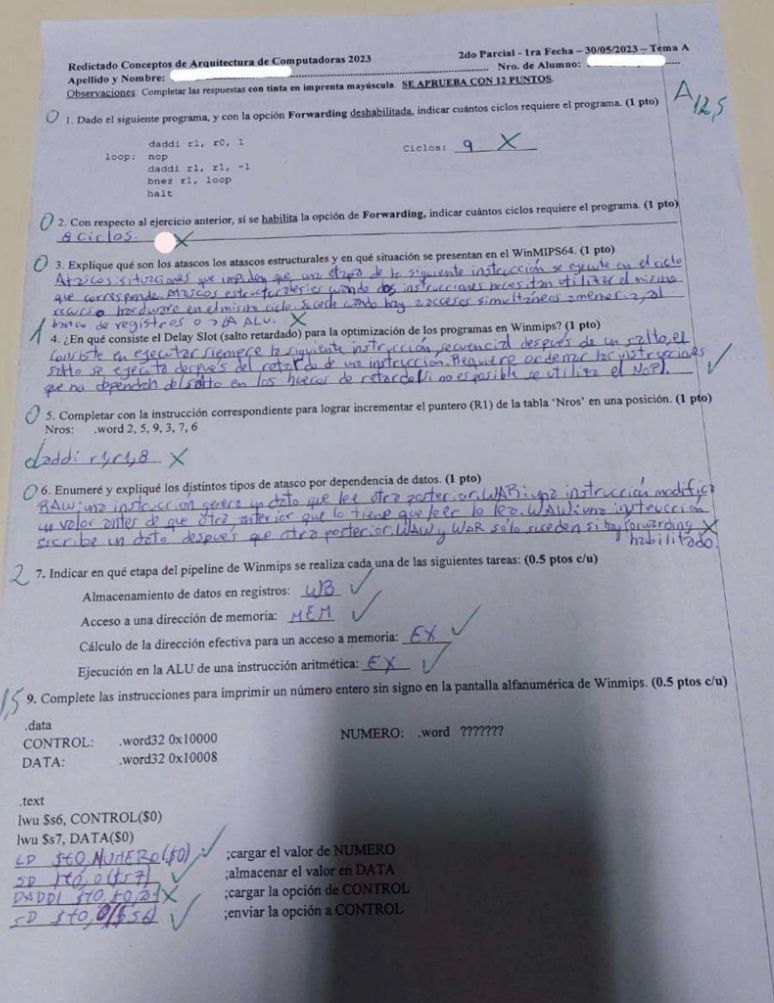 Redictado Conceptos de Arquitectura de Computadoras 2023 2do Parcial - 1ra Fecha – 30/05/2023 – Tema A
Apellido y Nombre: Nro. de Alumno:
Observaciones: Completar las respuestas con tinta en imprenta mayúscula. SE APRUEBA CON 12 PUNTOS.
A 12,5
0 1. Dado el siguiente programa, y con la opción Forwarding deshabilitada, indicar cuántos ciclos requiere el programa. (1 pto)
daddi r1, r0, 1
loop: nop Ciclos: 9 X
daddi r1, r1, -1
bnez r1, loop
halt
0 2. Con respecto al ejercicio anterior, si se habilita la opción de Forwarding, indicar cuántos ciclos requiere el programa. (1 pto)
8 ciclos. X
0 3. Explique qué son los atascos los atascos estructurales y en qué situación se presentan en el WinMIPS64. (1 pto)
Atascos: situaciones que impiden que una etapa de la siguiente instrucción se ejecute en el ciclo
que corresponde. Atascos estructurales: cuando dos instrucciones necesitan utilizar el mismo
recurso hardware en el mismo ciclo. Sucede cuando hay 2 accesos simultáneos a memoria, al
banco de registros o a la ALU. X
1 4. ¿En qué consiste el Delay Slot (salto retardado) para la optimización de los programas en Winmips? (1 pto)
Consiste en ejecutar siempre la siguiente instrucción secuencial después de un salto, el
salto se ejecuta después del retardo de una instrucción. Requiere ordenar las instrucciones
que no dependan del salto en los huecos de retardo (si no es posible se utiliza el NOP).
0 5. Completar con la instrucción correspondiente para lograr incrementar el puntero (R1) de la tabla 'Nros' en una posición. (1 pto)
Nros: .word 2, 5, 9, 3, 7, 6
daddi r1,r1,8 X
0 6. Enumeré y expliqué los distintos tipos de atasco por dependencia de datos. (1 pto)
RAW: una instrucción genera un dato que lee otra posterior. WAR: una instrucción modifica
un valor antes de que otra anterior que lo tiene que leer lo lea. WAW: una instrucción
escribe un dato después que otra posterior. WAW y WAR sólo suceden si hay forwarding X
habilitado.
2 7. Indicar en qué etapa del pipeline de Winmips se realiza cada una de las siguientes tareas: (0.5 ptos c/u)
Almacenamiento de datos en registros: WB
Acceso a una dirección de memoria: MEM
Cálculo de la dirección efectiva para un acceso a memoria: EX
Ejecución en la ALU de una instrucción aritmética: EX
1,5 9. Complete las instrucciones para imprimir un número entero sin signo en la pantalla alfanumérica de Winmips. (0.5 ptos c/u)
.data
CONTROL: .word32 0x10000 NUMERO: .word ???????
DATA: .word32 0x10008
.text
lwu $s6, CONTROL($0)
lwu $s7, DATA($0)
LD $t0, NUMERO($0) ;cargar el valor de NUMERO
SD $t0, 0($s7) ;almacenar el valor en DATA
DADDI $t0, $0, X ;cargar la opción de CONTROL
SD $t0, 0($s6) ;enviar la opción a CONTROL